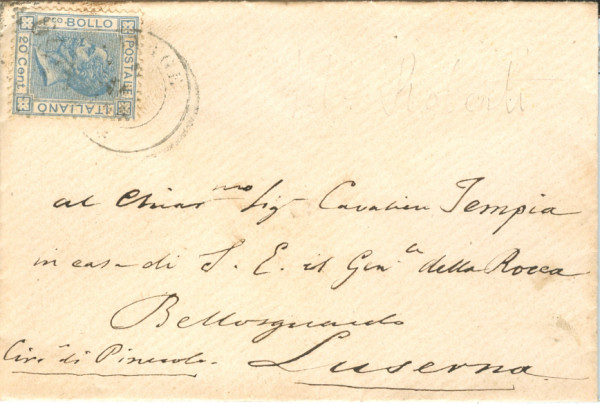 Fco BOLLO
POSTALE
ITALIANO
20 Cent.
al Chiar.mo Sig. Cavaliere Tempia
in casa di S. E. il Gen.a della Rocca
Bellosguardo
Circ. di Pinerolo.
Luserna